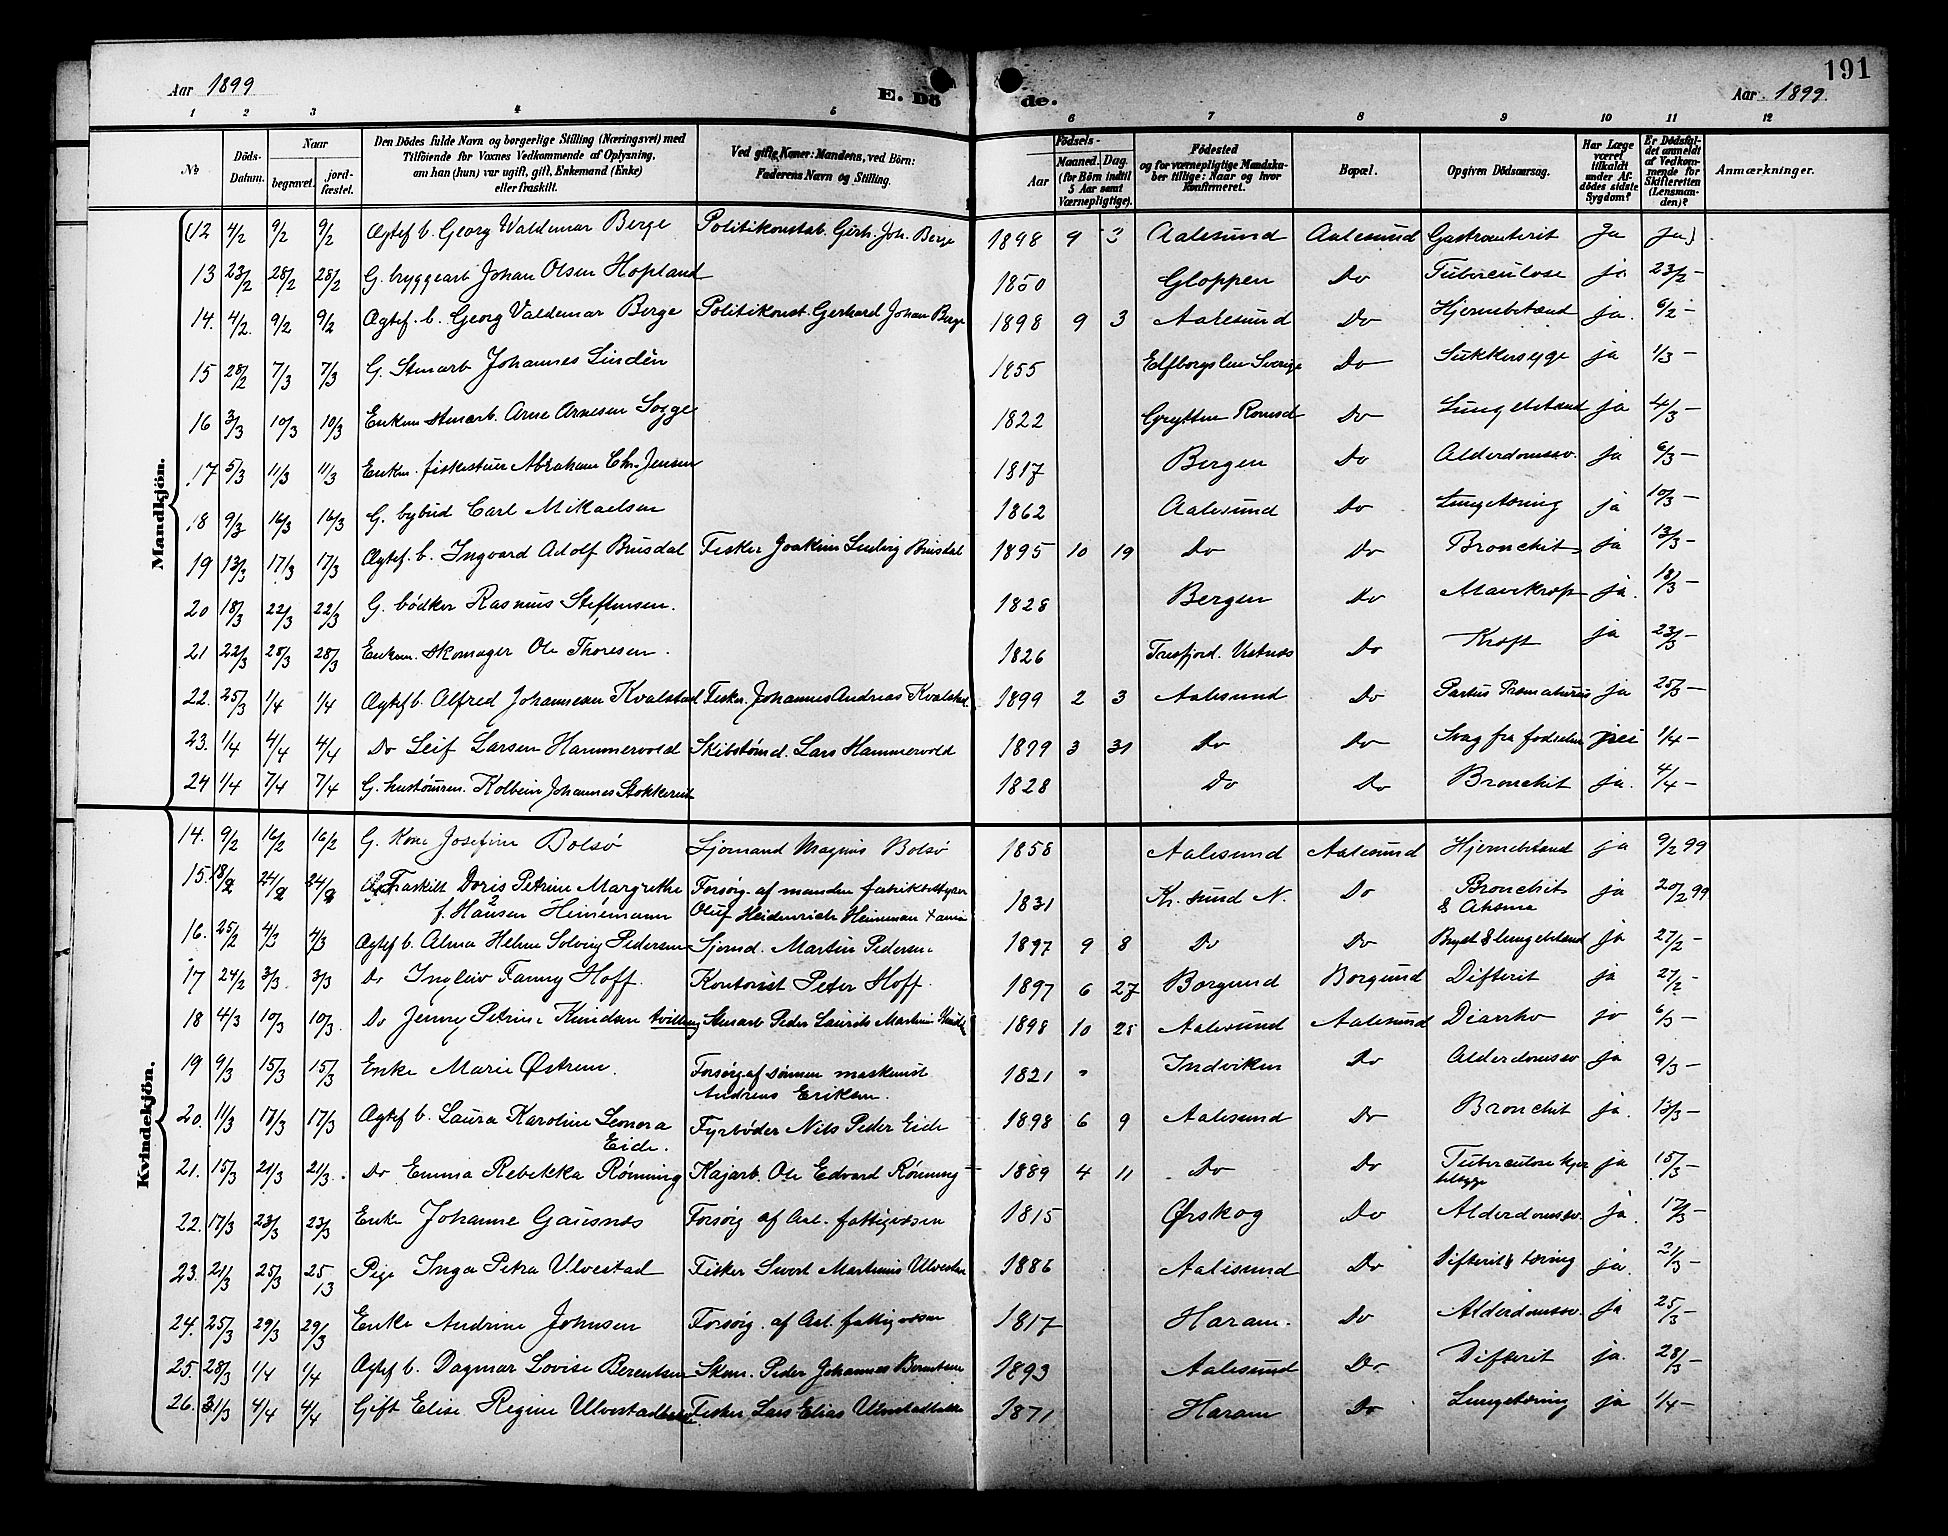 191
Aar 1899
E. Dö de.
Aar 1899.
1 2 3 4 5 6 7 8 9 10 11 12
№ Döds-Datum. Naar begravet. jord-fæstet. Den Dödes fulde Navn og borgerlige Stilling (Næringsvei) med Tilföiende for Voxnes Vedkommende af Oplysning, om han (hun) var ugift, gift, Enkemand (Enke) eller fraskilt. Ved gifte Koner: Mandens, ved Börn: Faderens Navn og Stilling. Födsels- Aar Maaned. Dag. (for Börn indtil 5 Aar samt Værnepligtige). Födested og for værnepligtige Mandska-ber tillige: Naar og hvor Konfirmeret. Bopæl. Opgiven Dödsaarsag. Har Læge været tilkaldt under Af-dödes sidste Sygdom? Er Dödsfal-det anmeldt af Vedkom-mende for Skifteretten (Lensman-den)? Anmærkninger.
Mandkjön.
(12 4/2 9/2 9/2 Ægtef b. Georg Valdemar Berge Politikonstab. Gerh. Joh. Berge 1898 9 3 Aalesund Aalesund Gastroenterit Ja ja)
13 23/2 28/2 28/2 G. bryggearb Johan Olsen Hopland 1850 Gloppen Do Tuberculose ja 23/2 –
14. 4/2. 9/2 9/2 Ægtef. b. Georg Valdemar Berge Politikonst. Gerhard Johan Berge 1898 9 3 Aalesund Do Hjernebetænd ja. 6/2 –
15 28/2 7/3 7/3 G. Stenarb Johannes Lindén 1855 Elfborgs len Sverige Do Sukkersyge ja 1/3 –
16 3/3 10/3 10/3 Enkem stenarb. Arne Arnesen Sogge 1822 Grytten Romsd Do Lungebetænd ja 4/3 –
17 5/3 11/3 11/3 Enkem. fiskestuer Abraham Chr. Jensen 1817 Bergen Do Alderdomssv. ja 6/3 –
18 9/3 16/3 16/3 G. bybud Carl Mikaelsen 1862 Aalesund Do Lungetæring ja 10/3 –
19 13/3 17/3 17/3 Ægtef. b. Ingvard Adolf Brusdal Fisker Joakim Ludvig Brusdal 1895 10 19 Do Do Bronchit ja 13/3 –
20 18/3 22/3 22/3 G. bödker Rasmus Steffensen. 1828 Bergen Do Mavekræft ja. 18/3 –
21 22/3 28/3 28/3 Enkem. Skomager Ole Thoresen. 1826 Tresfjord. Vestnæs Do Kræft ja 23/3 –
22. 25/3 1/4 1/4 Ægtef b. Alfred Johannesen Kvalstad Fisker. Johannes Andreas Kvalstad. 1899 2 3 Aalesund Do Partus Præmaturus ja 25/3 –
23. 1/4 4/4 4/4 Do Leif Larsen Hammervold Skibstømd. Lars Hammervold 1899 3 31 Do Do Svag fra fødselen nei 1/4 –
24 1/4 7/4 7/4 G. hustömrer. Kolbein Johannes Stokkereit 1828 Do Do Bronchit ja. 4/4 –
Kvindekjön.
14. 9/2 16/2 16/2 G. Kone Josefine Bolsö Sjømand Magnus Bolsö 1858 Aalesund Aalesund Hjernebetænd ja 9/2 99
15. 18/2 24/2 24/2 Fraskilt Doris Petrine Margrethe Forsörg. af manden fabrikbestyrer 1831 Kr. sund N. Do Bronchit ja 20/2 99
f. Hansen Heinemann Oluf Heidenreich Heinemann & Athsma
16. 25/2 4/3 4/3 Ægtef b. Alma Helene Solveig Pedersen Sjømd. Martin Pedersen 1897 9 8 Do Do Bryst & lungebetænd ja 27/2 –
17 24/2 3/3 3/3 Do Ingleiv Fanny Hoff. Kontorist Peter Hoff. 1897 6 27 Borgund Borgund Difterit ja 27/2 –
18 4/3 10/3 10/3 Do Jenny Petrine Knudsen tvilling Stenarb Peder Laurits Martin 1898 10 25 Aalesund Aalesund Diarrho ja 6/3 –
19 9/3 15/3 15/3 Enke Marie Østrem. Forsörg af sönnen maskinist 1821 Indviken Do Alderdomssv ja 9/3 –
Andreas Eriksen.
20. 11/3 17/3 17/3 Ægtef b. Laura Karoline Leonora Fyrböder Nils Peder Eide 1898 6 9 Aalesund Do Bronchit ja. 13/3 –
Eide.
21. 15/3 21/3 21/3 Do Emma Rebekka Rönning Kajarb. Ole Edvard Rönning 1889 4 11 Do Do Tuberculose ja 15/3 –
22. 17/3 23/3 23/3 Enke Johanne Gausnæs Forsörg af Aal. fattigvæsen 1815 Ørskog Do Alderdomssv. ja. 17/3 –
23. 21/3 25/3 25/3 Pige Inga Petra Ulvestad Fisker Sivert Martinus Ulvestad 1886 Aalesund Do Difterit & tæring ja. 21/3 –
24. 25/3 29/3 29/3 Enke Andrine Johnsen Forsörg. af Aal. fattigvæsen 1817 Haram. Do Alderdomssv. ja 25/3 –
25. 28/3 1/4 1/4 Ægtef b. Dagmar Lovise Berentsen Skom. Peder Johannes Berentsen 1893 Aalesund Do Difterit ja. 28/3 –
26. 31/3 4/4 4/4 Gift Elise Regine Fisker Lars Elias 1871 Haram Do Lungetæring ja 1/4 –